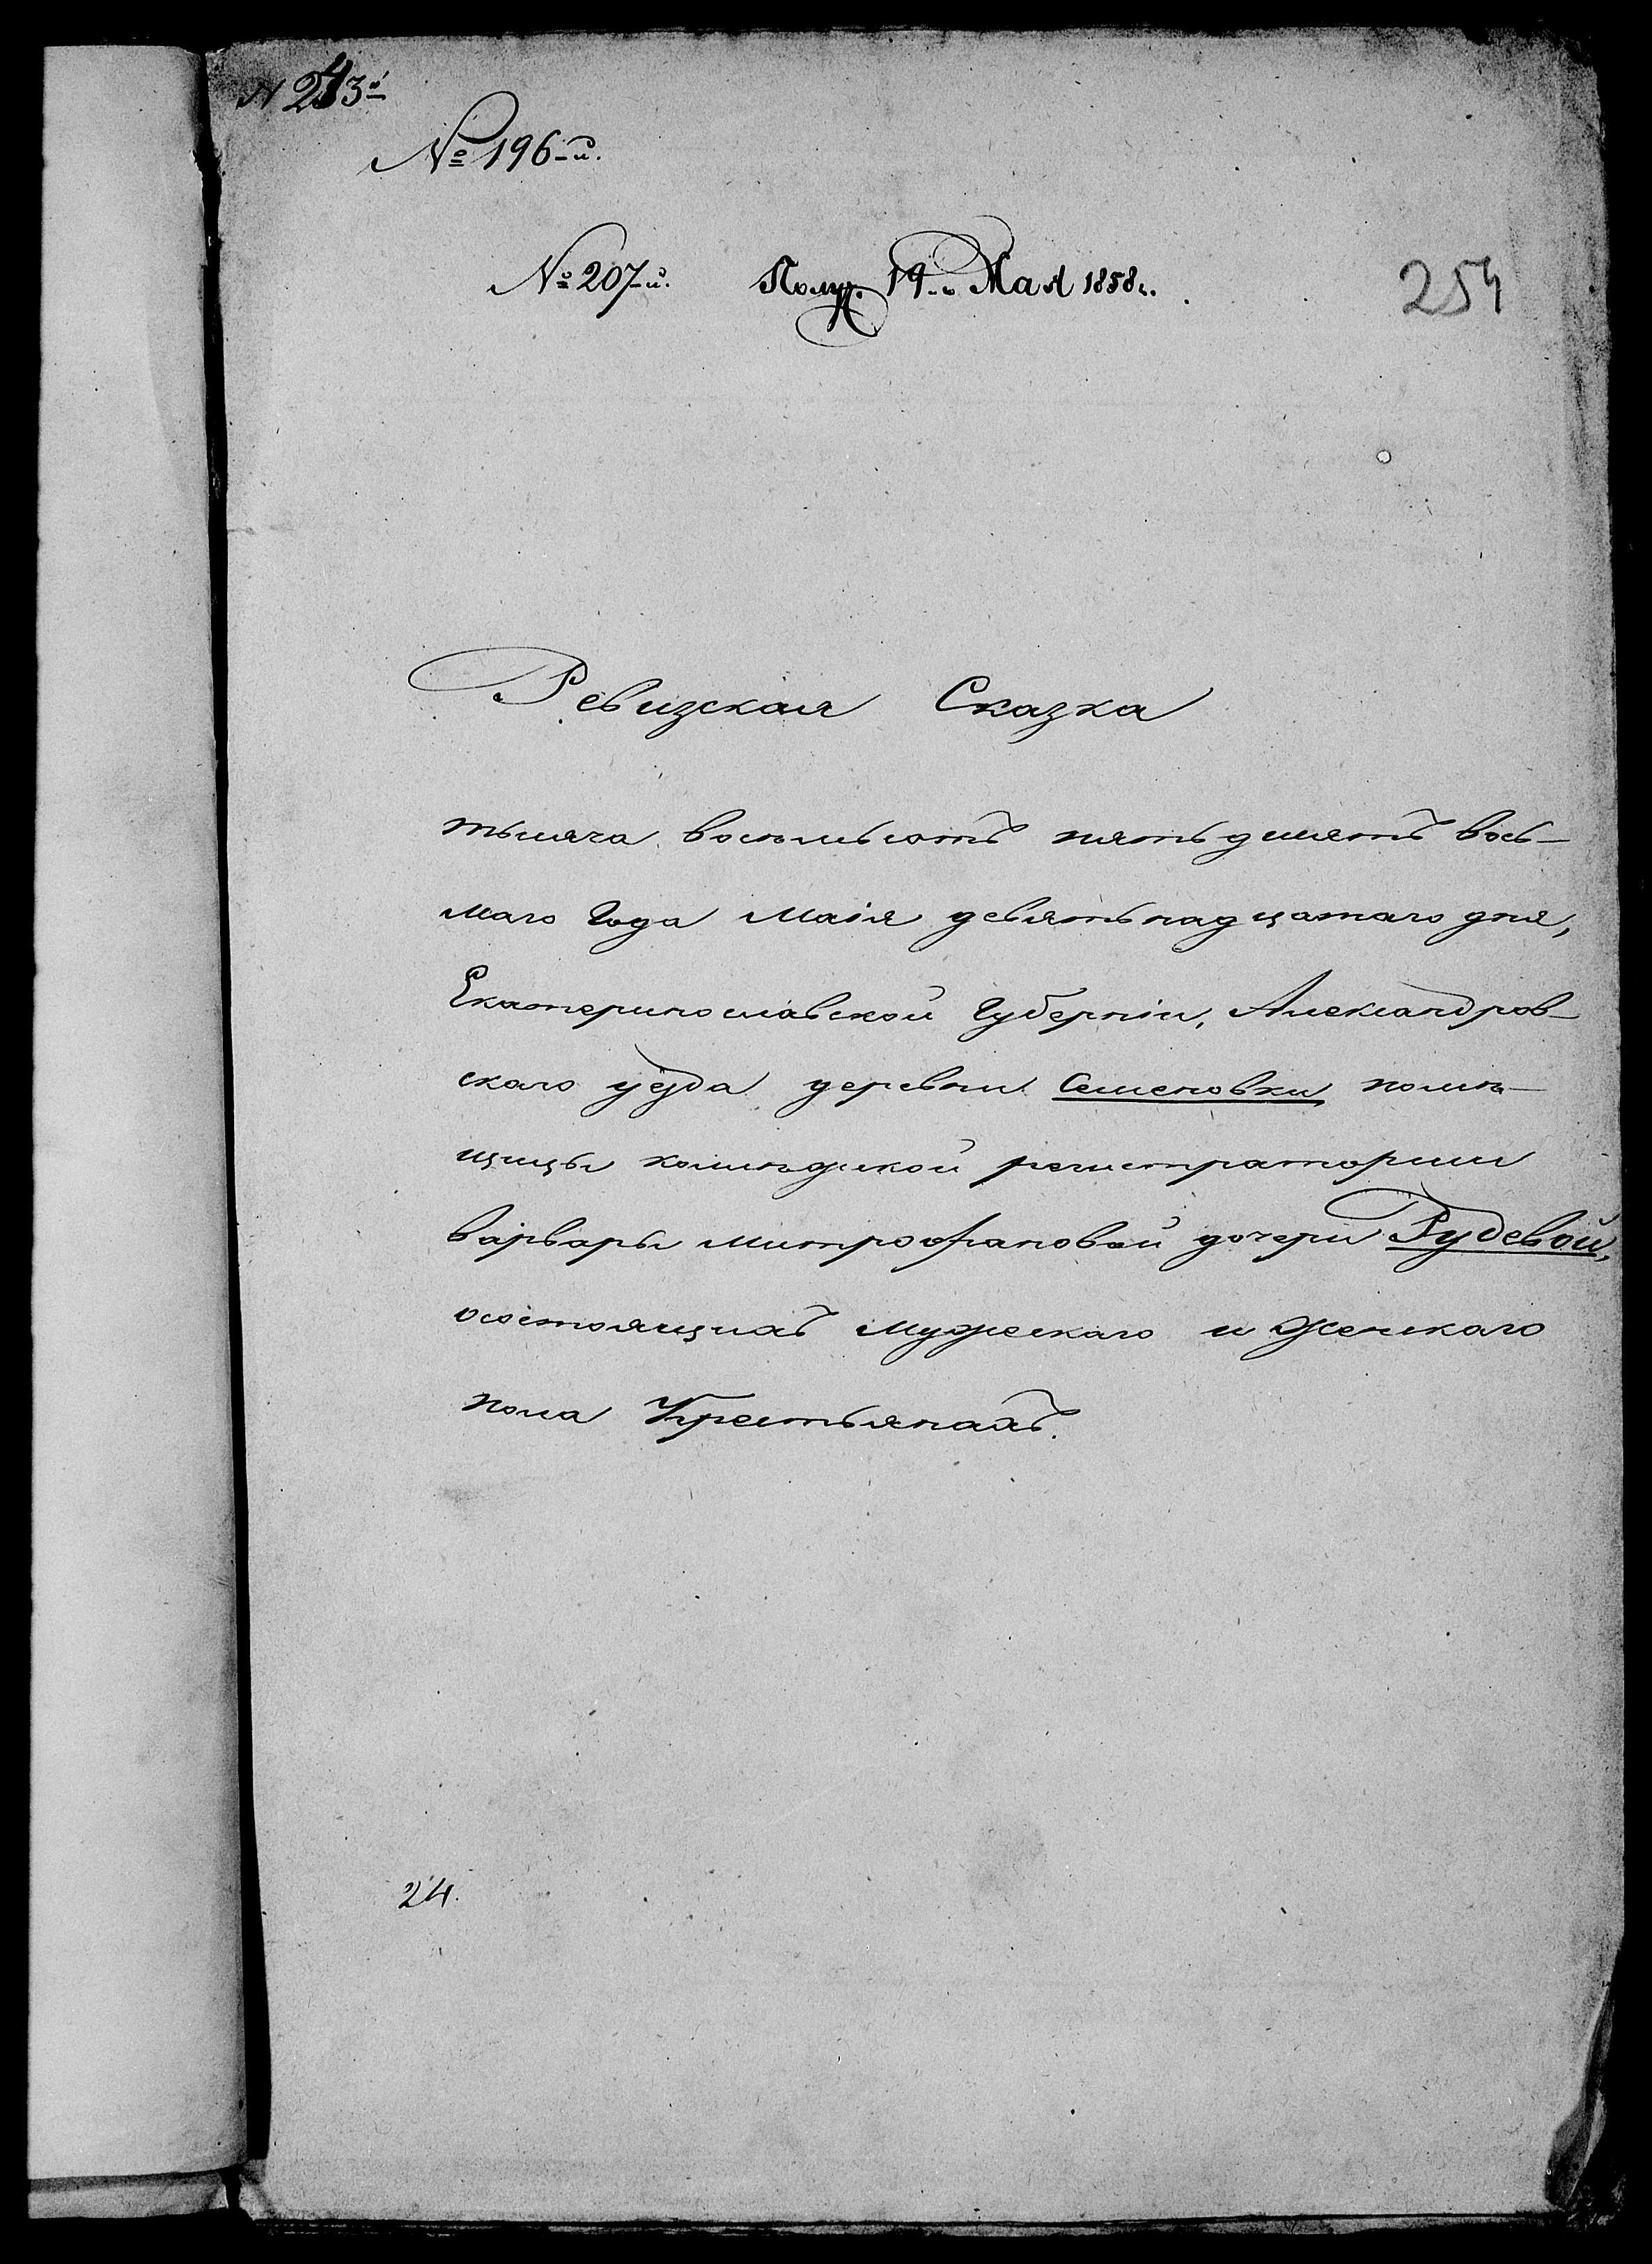 N 243-й
№ 196-й.
№ 207-й. Получ. 19-го Мая 1858 г.
254
Ревизская Сказка
тысяча восемьсотъ пятьдесятъ вось-
маго Года Маія девятьнадцатаго дня,
Екатеринославской Губерніи, Александров-
скаго уѣзда деревни Семеновки помѣ-
щицы колежской регистраторши
Варвары Митрофановой дочери Рудевой,
осостоящихъ мужескаго и женскаго
пола Крестьянахъ.
24.